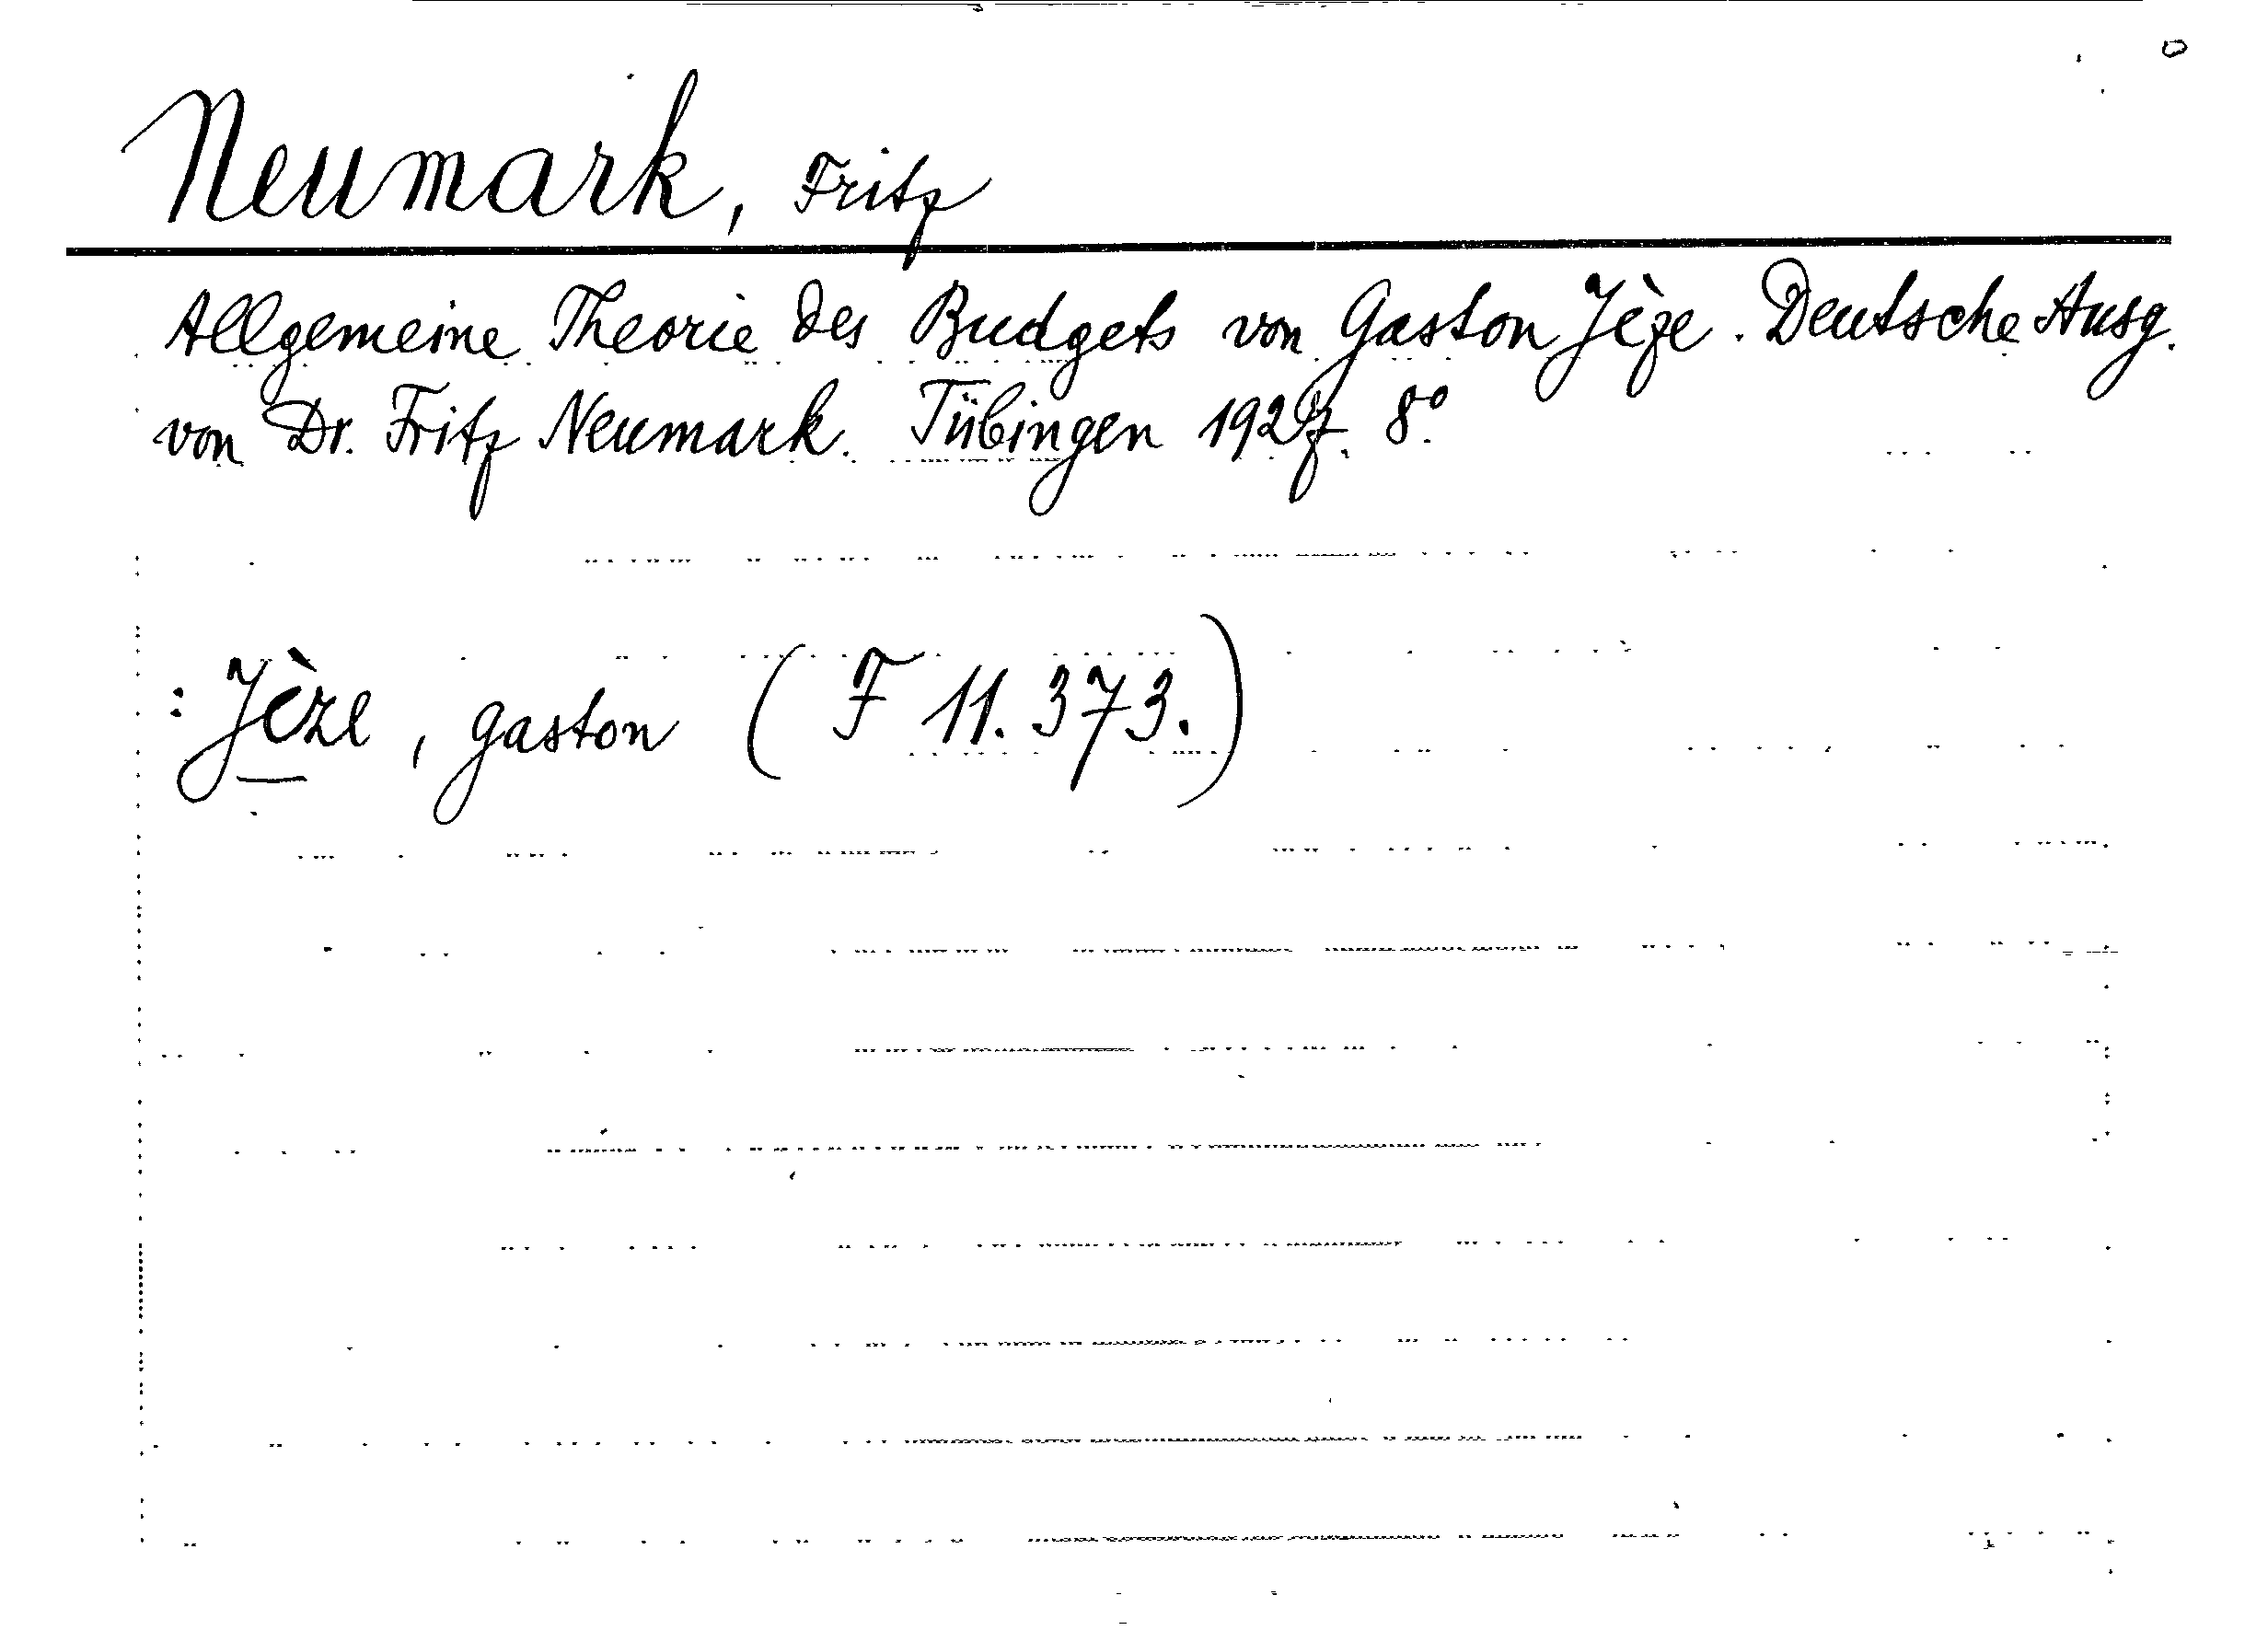 Neumark, Fritz
Allgemeine Theorie des Budgets von Gaston Jèze. Deutsche Ausg.
von Dr. Fritz Neumark. Tübingen 1927. 8°
: Jèze, Gaston (F 11.373.)